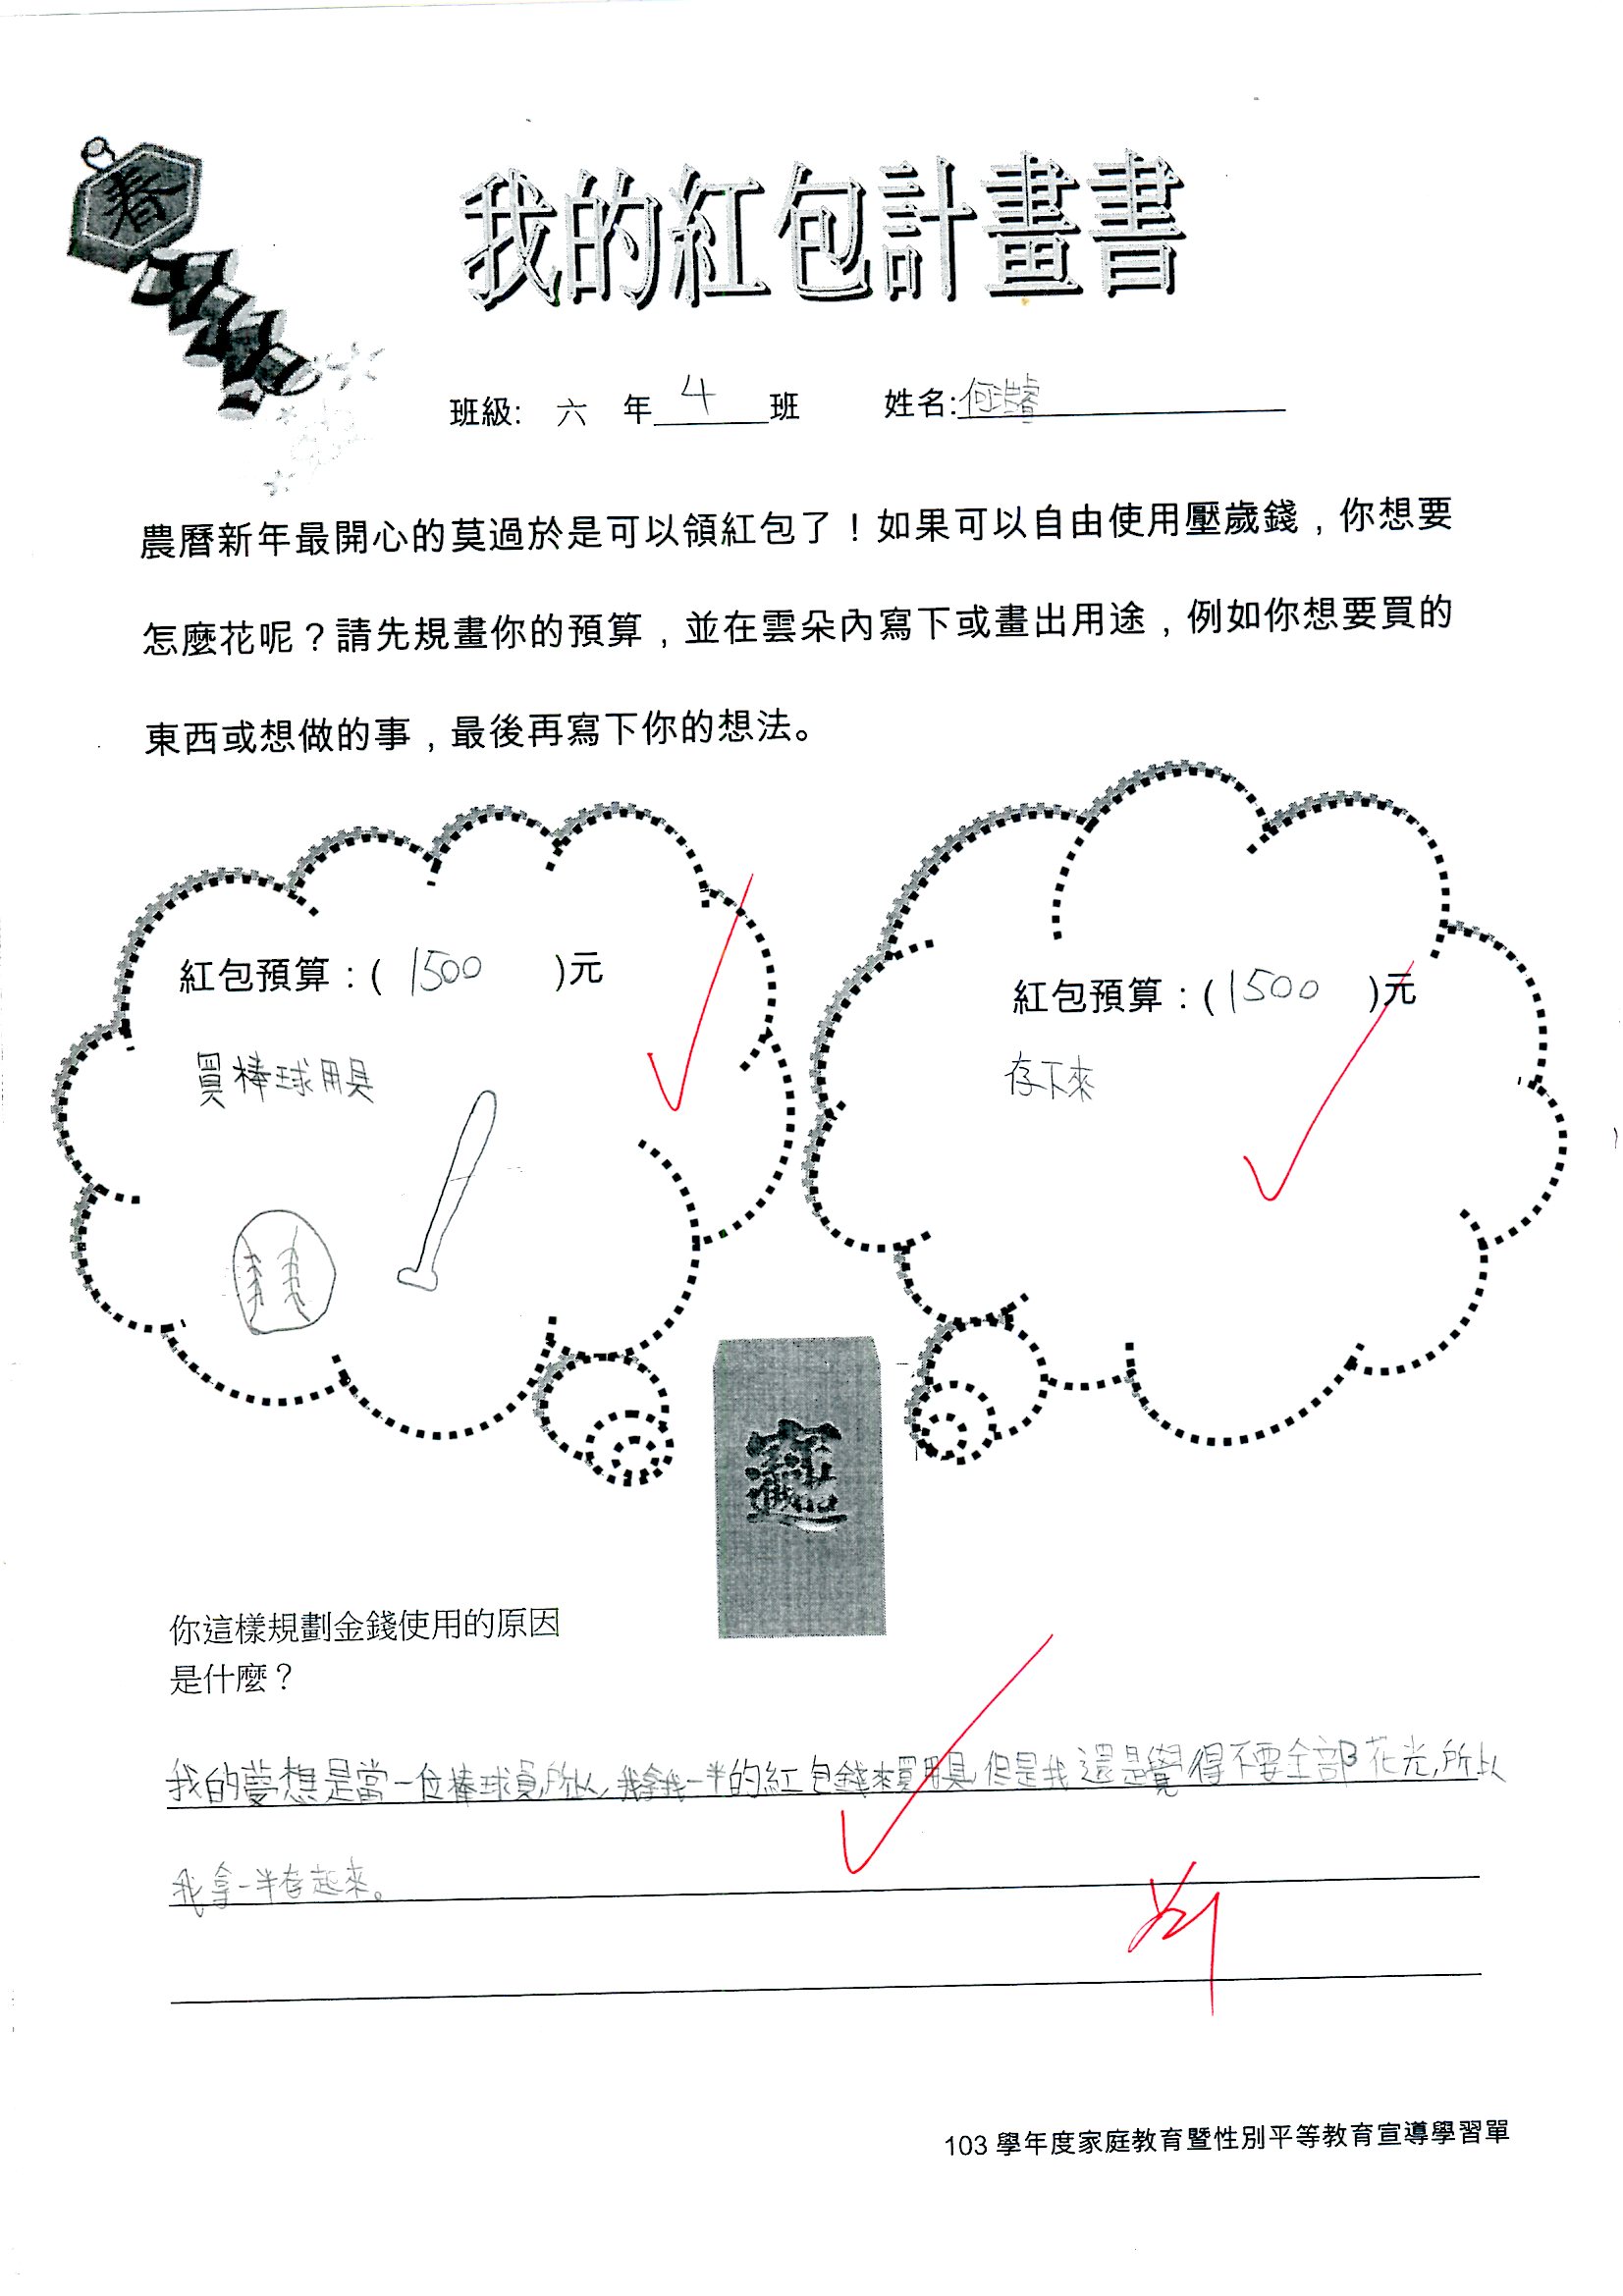 春
我的紅包計畫書
班級: 六 年 4 班 姓名:何浩睿
農曆新年最開心的莫過於是可以領紅包了！如果可以自由使用壓歲錢，你想要
怎麼花呢？請先規畫你的預算，並在雲朵內寫下或畫出用途，例如你想要買的
東西或想做的事，最後再寫下你的想法。
紅包預算：( 1500 )元
買棒球用具
紅包預算：( 1500 )元
存下來
你這樣規劃金錢使用的原因
是什麼？
我的夢想是當一位棒球員,所以,我拿我一半的紅包錢來買用具,但是我還是覺得不要全部花光,所以
我拿一半存起來。
103 學年度家庭教育暨性別平等教育宣導學習單